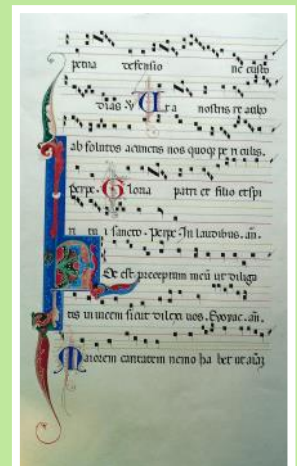 petua defensio ne custo
dias ℣ Ut ra nostris re
ab solutos a cunctis nos quoqꝫ pe ri culis.
perpe Gloria patri et filio et spi
ri tu i sancto. perpe In laudibus. añ.
Hoc est preceptum meū ut diliga
tis in uicem sicut dilexi uos. Euouae. añ.
Maiorem caritatem nemo ha bet ut aīaꝫ